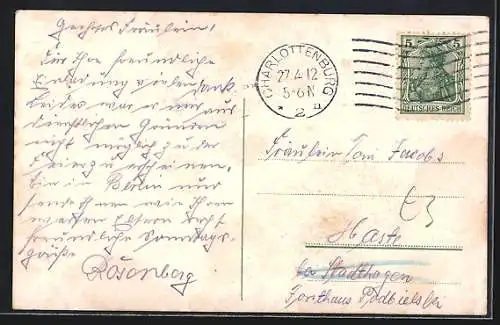 Geehrtes Fräulein!
Für Ihre freundliche
Einladung vielen Dank.
Leider war es mir aus
dienstlichen Gründen
nicht möglich zu der
Feier zu erscheinen.
Bin in Berlin und
sende Ihnen wie Ihren
werten Eltern recht
freundliche Sonntags-
grüße
Rosenberg
CHARLOTTENBURG
27.4.12
5-6N
* 2 n
5 5
DEUTSCHES REICH
Fräulein Toni Jacobs
Harte
bei Stadthagen
Forsthaus